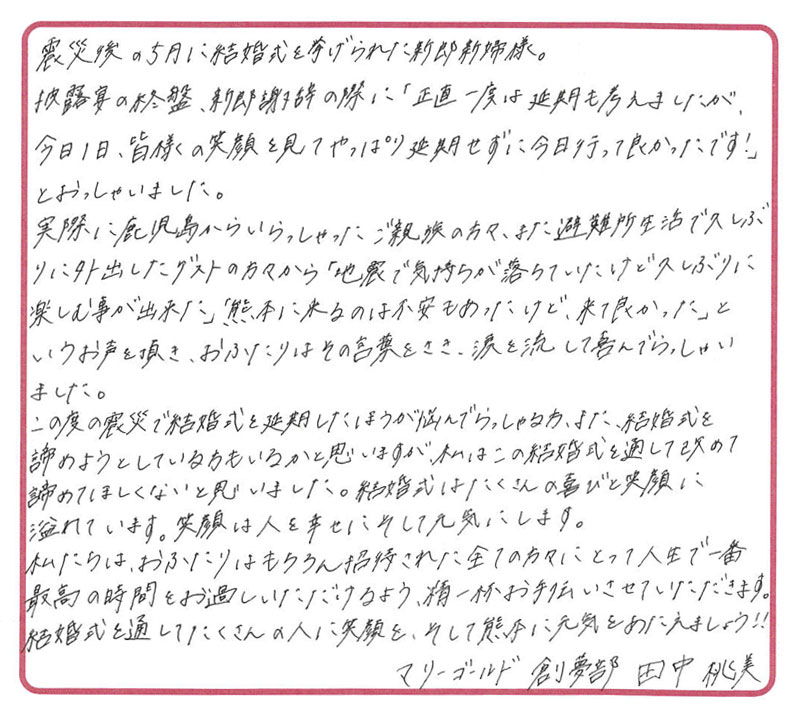 震災後の5月に結婚式を挙げられた新郎新婦様。
披露宴の終盤、新郎謝辞の際に「正直一度は延期も考えましたが、
今日1日、皆様の笑顔を見てやっぱり延期せずに今日行って良かったです!」
とおっしゃいました。
実際に鹿児島からいらっしゃったご親族の方々、また避難所生活で久しぶ
りに外出したゲストの方々から「地震で気持ちが落ちていたけど久しぶりに
楽しむ事が出来た」「熊本に来るのは不安もあったけど、来て良かった」と
いうお声を頂き、おふたりはその言葉をきき、涙を流して喜んでらっしゃい
ました。
この度の震災で結婚式を延期したほうが悩んでらっしゃる方、また、結婚式を
諦めようとしている方もいるかと思いますが、私はこの結婚式を通して改めて
諦めてほしくないと思いました。結婚式はたくさんの喜びと笑顔に
溢れています。笑顔は人を幸せにそして元気にします。
私たちは、おふたりはもちろん招待された全ての方々にとって人生で一番
最高の時間をお過しいただけるよう、精一杯お手伝いさせていただきます。
結婚式を通してたくさんの人に笑顔を、そして熊本に元気をあたえましょう!!
マリーゴールド 創夢部 田中 桃美